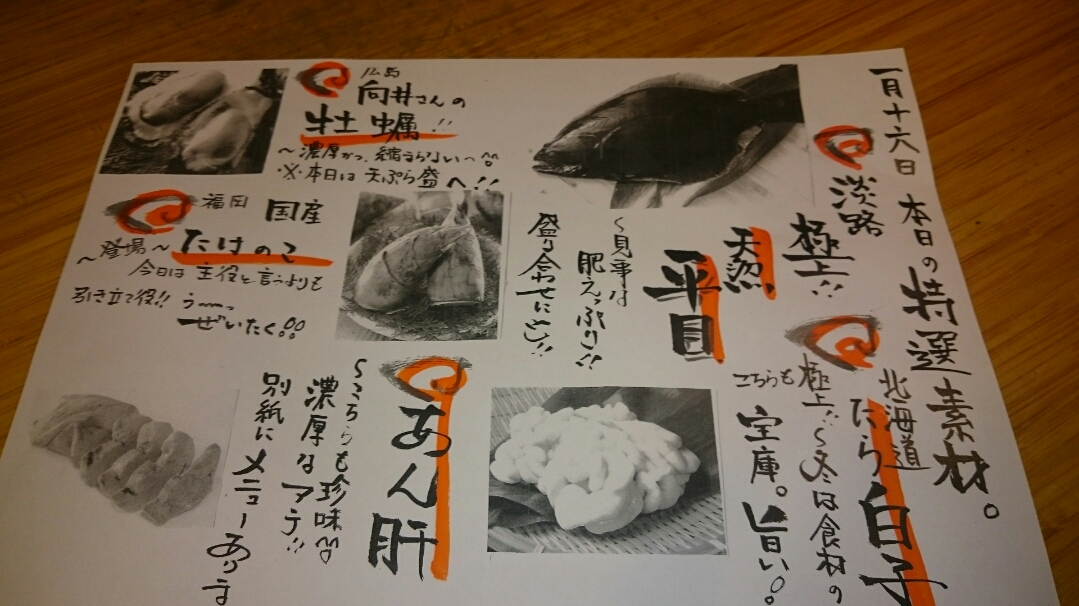 一月十六日 本日の特選素材。
淡路
極上!!
天然
平目
～見事な
肥えっぷり!!
盛り合わせにど!!
北海道
たら白子
こちらも極上!!～冬は食材の
宝庫。旨い。
広島
向井さんの
牡蠣!!
～濃厚かつ、縮まらない～
※本日は天ぷら盛へ!!
福岡 国産
～登場～たけのこ
今日は主役と言うよりも
引き立て役!! う～っ
ぜいたく
あん肝
～こちらも珍味
濃厚なアテ!!
別紙にメニューあります